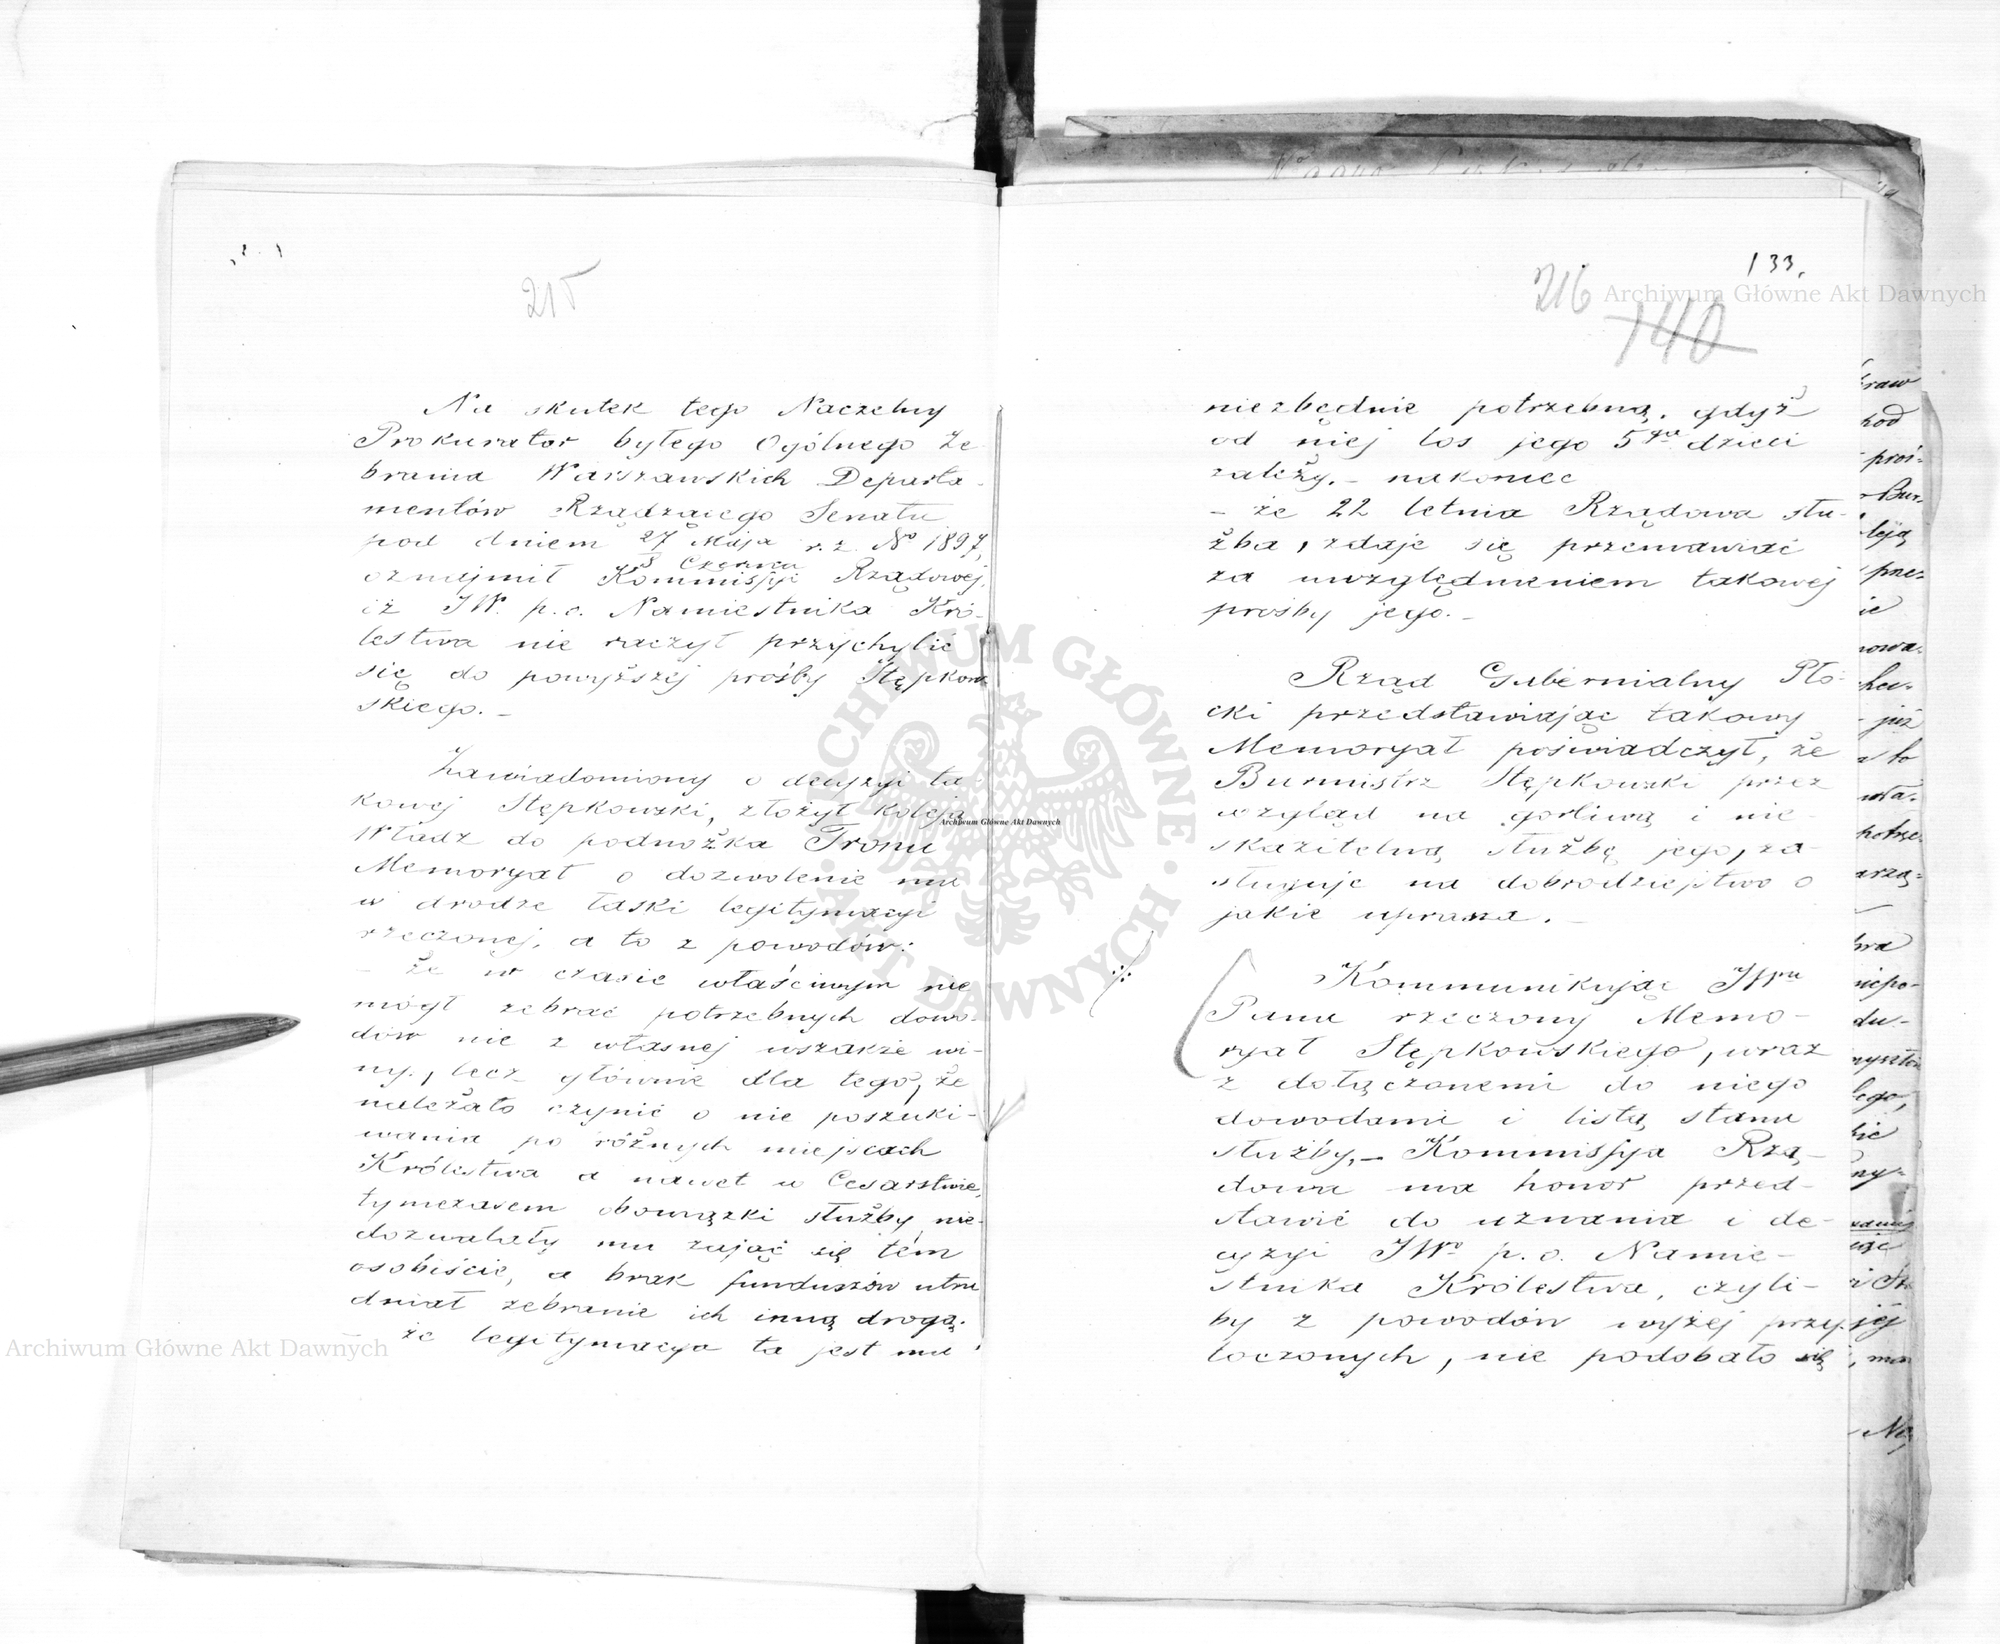 215
Na skutek tego Naczelny
Prokurator byłego Ogólnego Ze-
brania Warszawskich Departa-
mentów Rządzącego Senatu
pod dniem 27 Maja r. z. Nº 1897,
8 Czerwca
oznajmił Kommissyi Rządowej,
iż JW. p. o. Namiestnika Kró-
lestwa nie raczył przychylić
się do powyższej prośby Stępkow-
skiego. –
Zawiadomiony o decyzyi ta-
kowej Stępkowski, złożył koleją
Władz do podnóżka Tronu
Memoryał o dozwolenie mu
w drodze łaski legitymacyi
rzeczonej, a to z powodów:
– że w czasie właściwym nie
mógł zebrać potrzebnych dowo-
dów nie z własnej wszakże wi-
ny, lecz głównie dla tego, że
należało czynić o nie poszuki-
wania po różnych miejscach
Królestwa a nawet w Cesarstwie,
tymczasem obowiązki służby nie-
dozwalały mu zająć się tém
osobiście, a brak funduszów utru
dniał zebranie ich inną drogą.
– że legitymacya ta jest mu
133.
216
140
niezbędnie potrzebną, gdyż
od niej los jego 5ga dzieci
zależy. – nakoniec
– że 22 letnia Rządowa słu-
żba, zdaje się przemawiać
za uwzględnieniem takowej
prośby jego. –
Rząd Gubernialny Pło-
cki przedstawiając takowy
Memoryał poświadczył, że
Burmistrz Stępkowski przez
wzgląd na gorliwą i nie-
skazitelną służbę jego, za-
sługuje na dobrodziejstwo o
jakie uprasza. –
Kommunikując JWu
Panu rzeczony Memo-
ryał Stępkowskiego, wraz
z dołączonemi do niego
dowodami i listą stanu
służby, – Kommissya Rzą-
dowa ma honor przed-
stawić do uznania i de-
cyzyi JWo p. o. Namie-
stnika Królestwa, czyli-
by z powodów wyżej przy-
toczonych, nie podobało się
Archiwum Główne Akt Dawnych
Archiwum Główne Akt Dawnych
Archiwum Główne Akt Dawnych
ARCHIWUM GŁÓWNE · AKT DAWNYCH ·